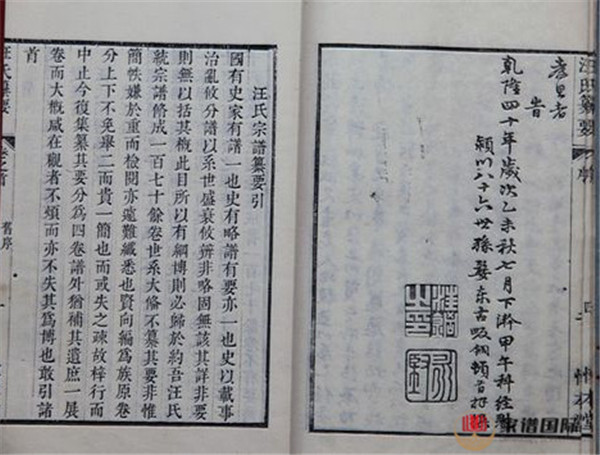 汪氏纂要
告
乾隆四十年歲次乙未秋七月下澣甲午科經
潁川八十六世孫婺東古畈鋼頓首拜
汪氏宗譜纂要引
國有史家有譜一也史有略譜有要亦一也史以載事
治亂攸分譜以系世盛衰攸辨非略固無該其詳非要
則無以括其概此目所以有綱博則必歸於約吾汪氏
統宗譜脩成一百七十餘卷世系大備不纂其要非惟
簡帙嫌於重而檢閱亦遠難纖悉也賢向編爲族原卷
分上下不免舉二而貴一簡也而或失之疎故梓行而
中止今復集纂其要分爲四卷譜外猶補其遺庶一展
卷而大概咸在觀者不煩而亦不失其爲博也敢引諸
首
汪氏纂要
卷之首
舊序
一
家谱国际